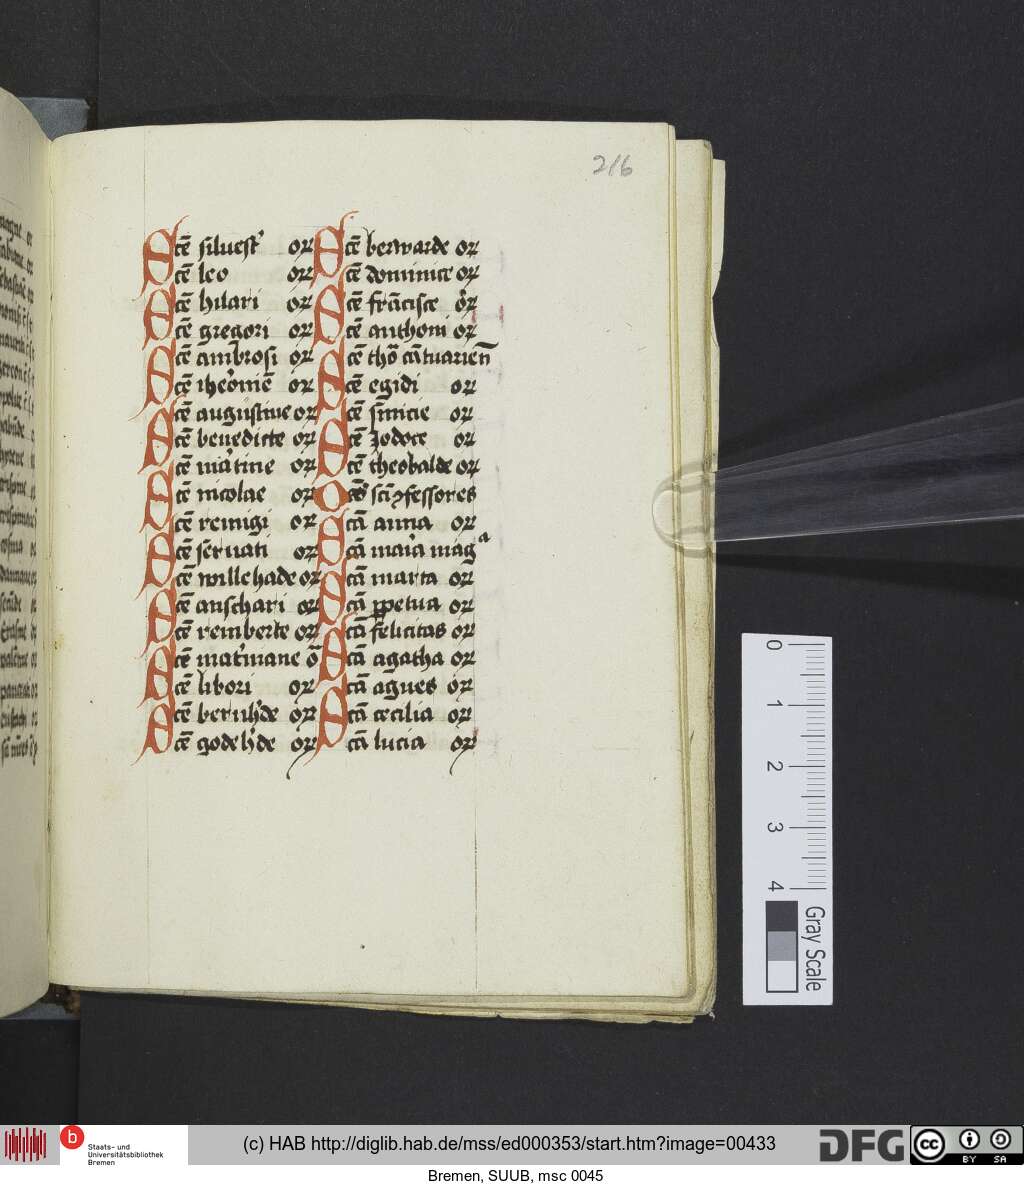 216
Scē siluest' or
Scē leo or
Scē hilari or
Scē gregori or
Scē ambrosi or
Scē iheōnimē or
Scē augustine or
Scē benedicte or
Scē martine or
Scē nicolae or
Scē remigi or
Scē seruati or
Scē willehade or
Scē anschari or
Scē remberte or
Scē mat'niane ō
Scē libori or
Scē bernh'de or
Scē godeh'de or
Scē berwarde or
Scē dominice or
Scē frācisce or
Scē anthoni or
Scē thō cātuarień
Scē egidi or
Scē
Scē Jodoce or
Scē theobalde or
Oēs scī ꝯfessores
Scā anna or
Scā maria magᵃ
Scā marta or
Scā ꝑpetua or
Scā felicitas or
Scā agatha or
Scā agnes or
Scā cecilia or
Scā lucia or
0
1
2
3
4
Gray Scale
b
Staats- und
Universitätsbibliothek
Bremen
(c) HAB http://diglib.hab.de/mss/ed000353/start.htm?image=00433
DFG
cc BY SA
Bremen, SUUB, msc 0045